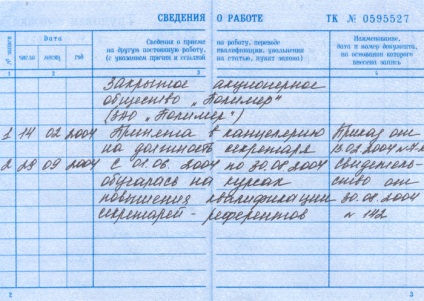 СВЕДЕНИЯ О РАБОТЕ ТК № 0595527
№ записи Дата Сведения о приеме на работу, переводе Наименование,
на другую постоянную работу, квалификации, увольнении дата и номер документа,
число месяц год (с указанием причин и ссылкой на статью, пункт закона) на основании которого внесена запись
1 2 3 4
Закрытое акционерное
общество „Полимер"
(ЗАО „Полимер")
1 14 02 2004 Принята в канцелярию Приказ от
на должность секретаря 13.02.2004
2 29 09 2004 С 01.06.2004 по 30.08.2004 Свидетель-
обучалась на курсах ство от
повышения квалификации 30.08.2004
секретарей-референтов № 142
2 3